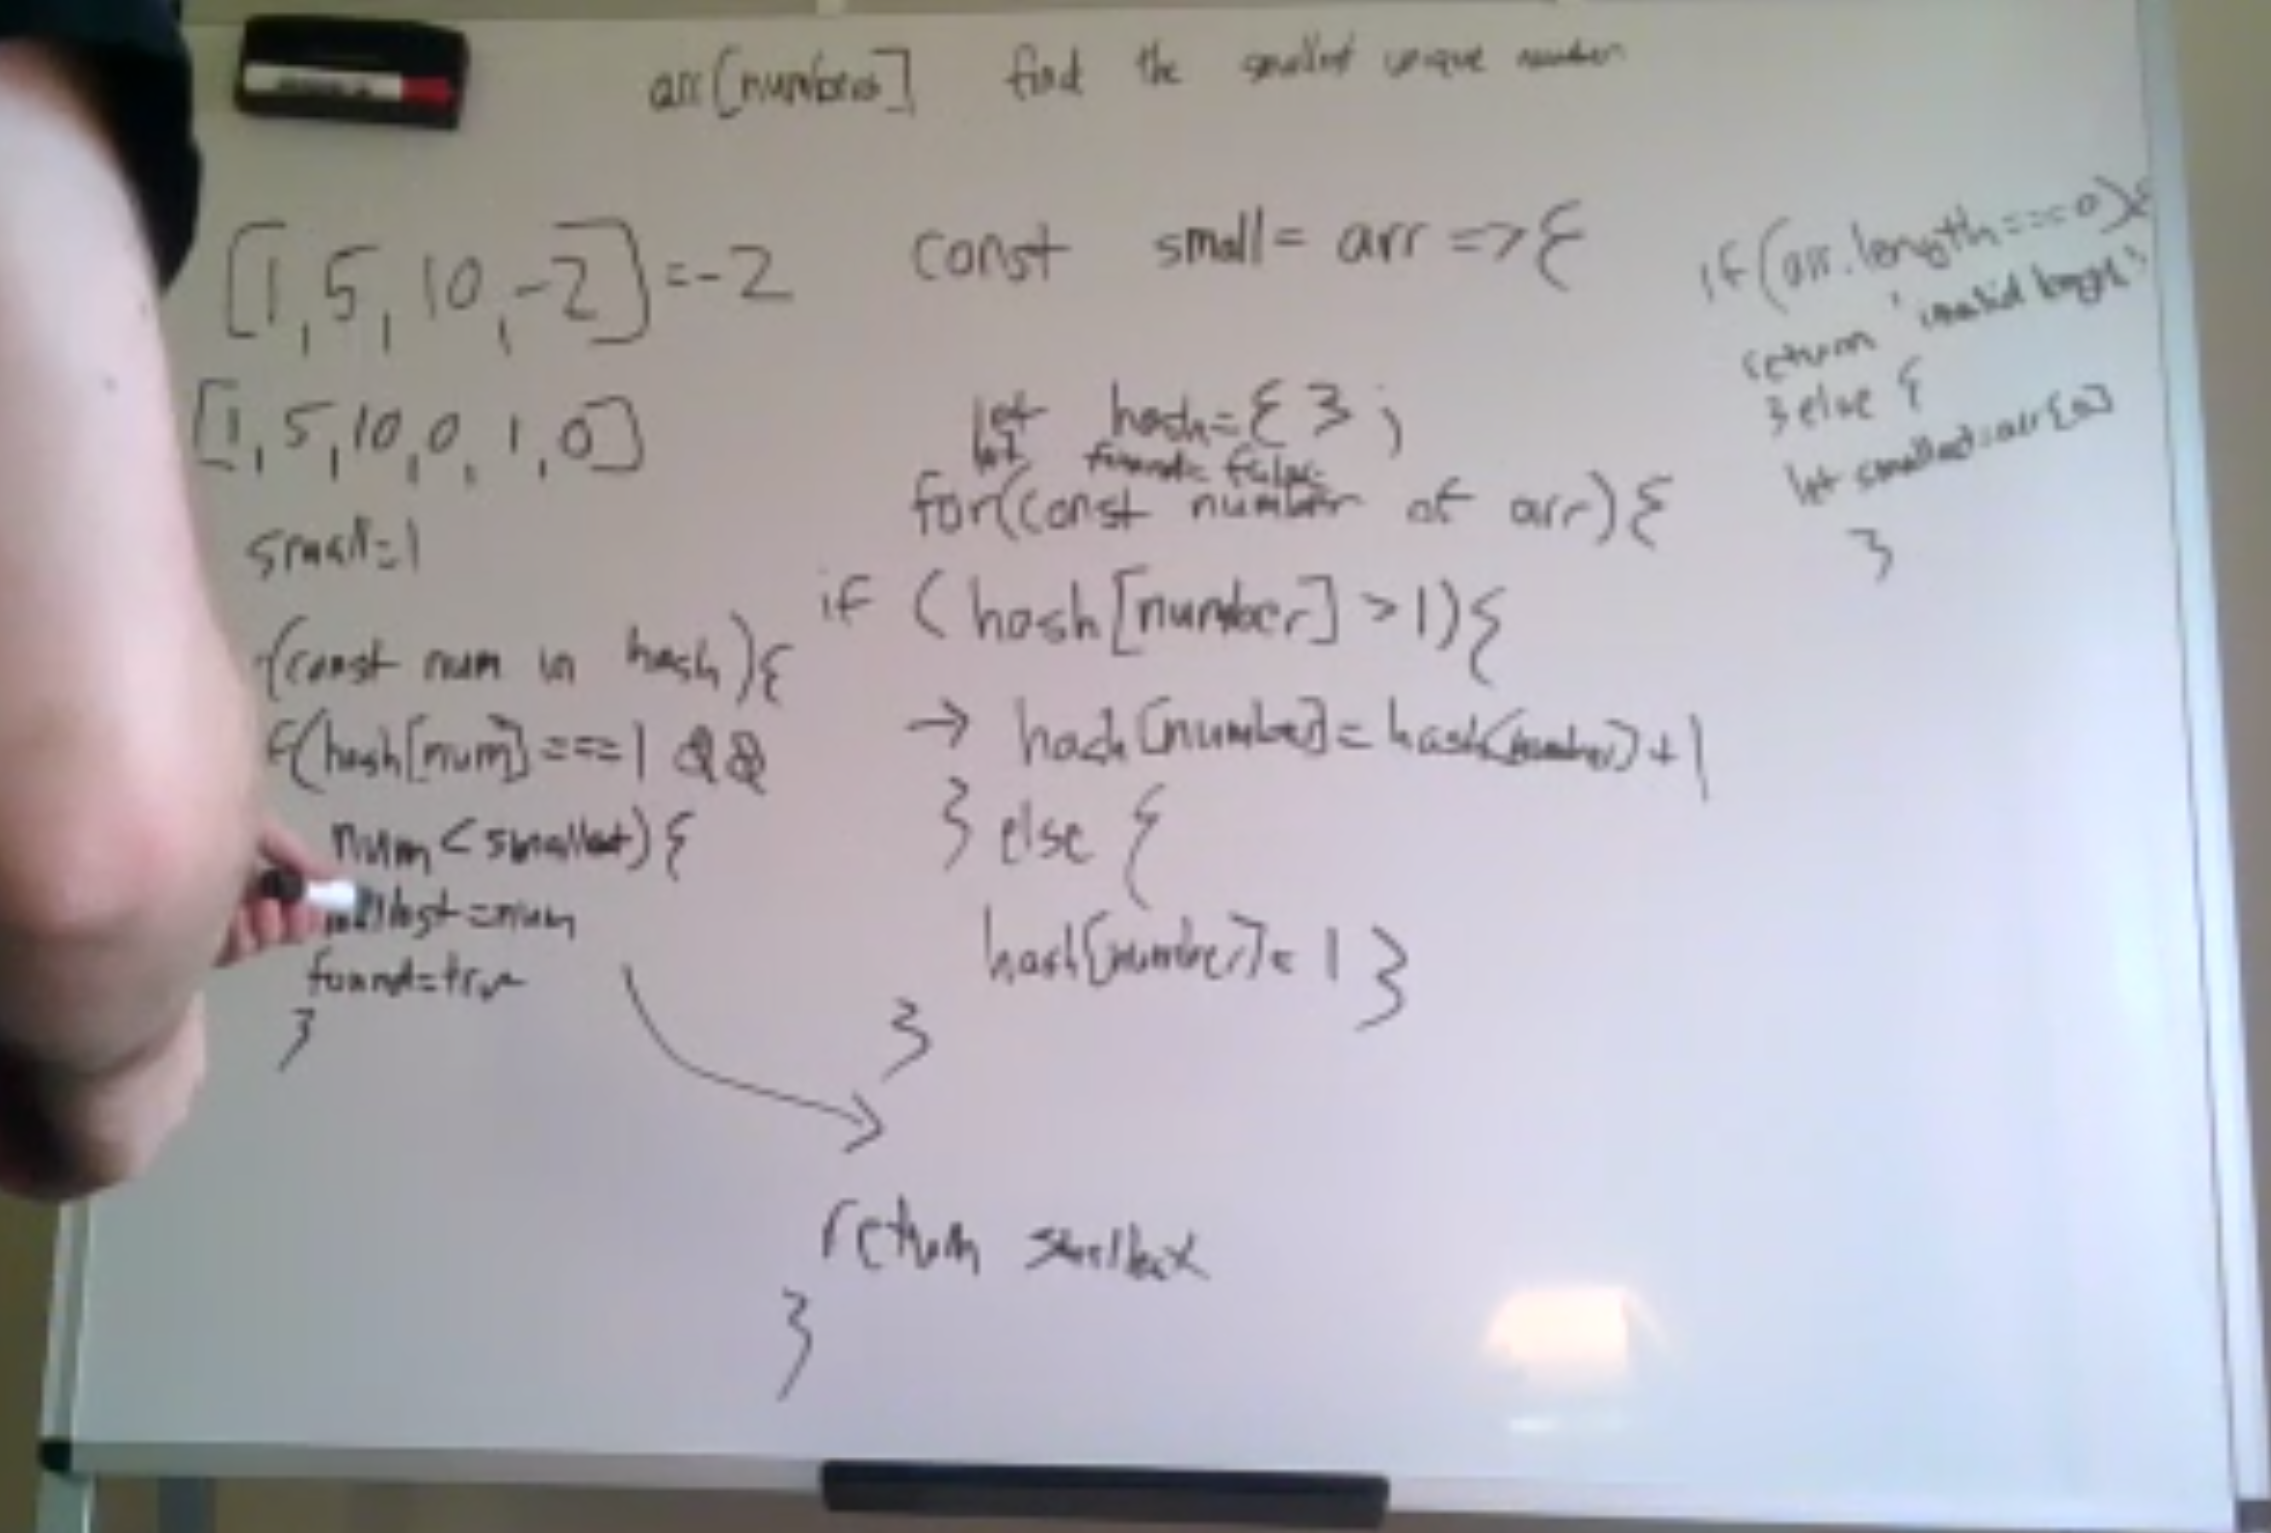 arr[numbers] find the smallest unique number
[1, 5, 10, -2] = -2
[1, 5, 10, 0, 1, 0]
small=1
(const num in hash){
f(hash[num] === 1 &&
num < smallest){
llest = num
found = true
}
const small = arr => {
let hash = { };
let found = false
for(const number of arr){
if (hash[number] > 1){
→ hash[number] = hash[number] + 1
} else {
hash[number] = 1 }
}
return smallest
}
if (arr.length === 0){
return 'invalid length'
} else {
let smallest = arr[0]
}